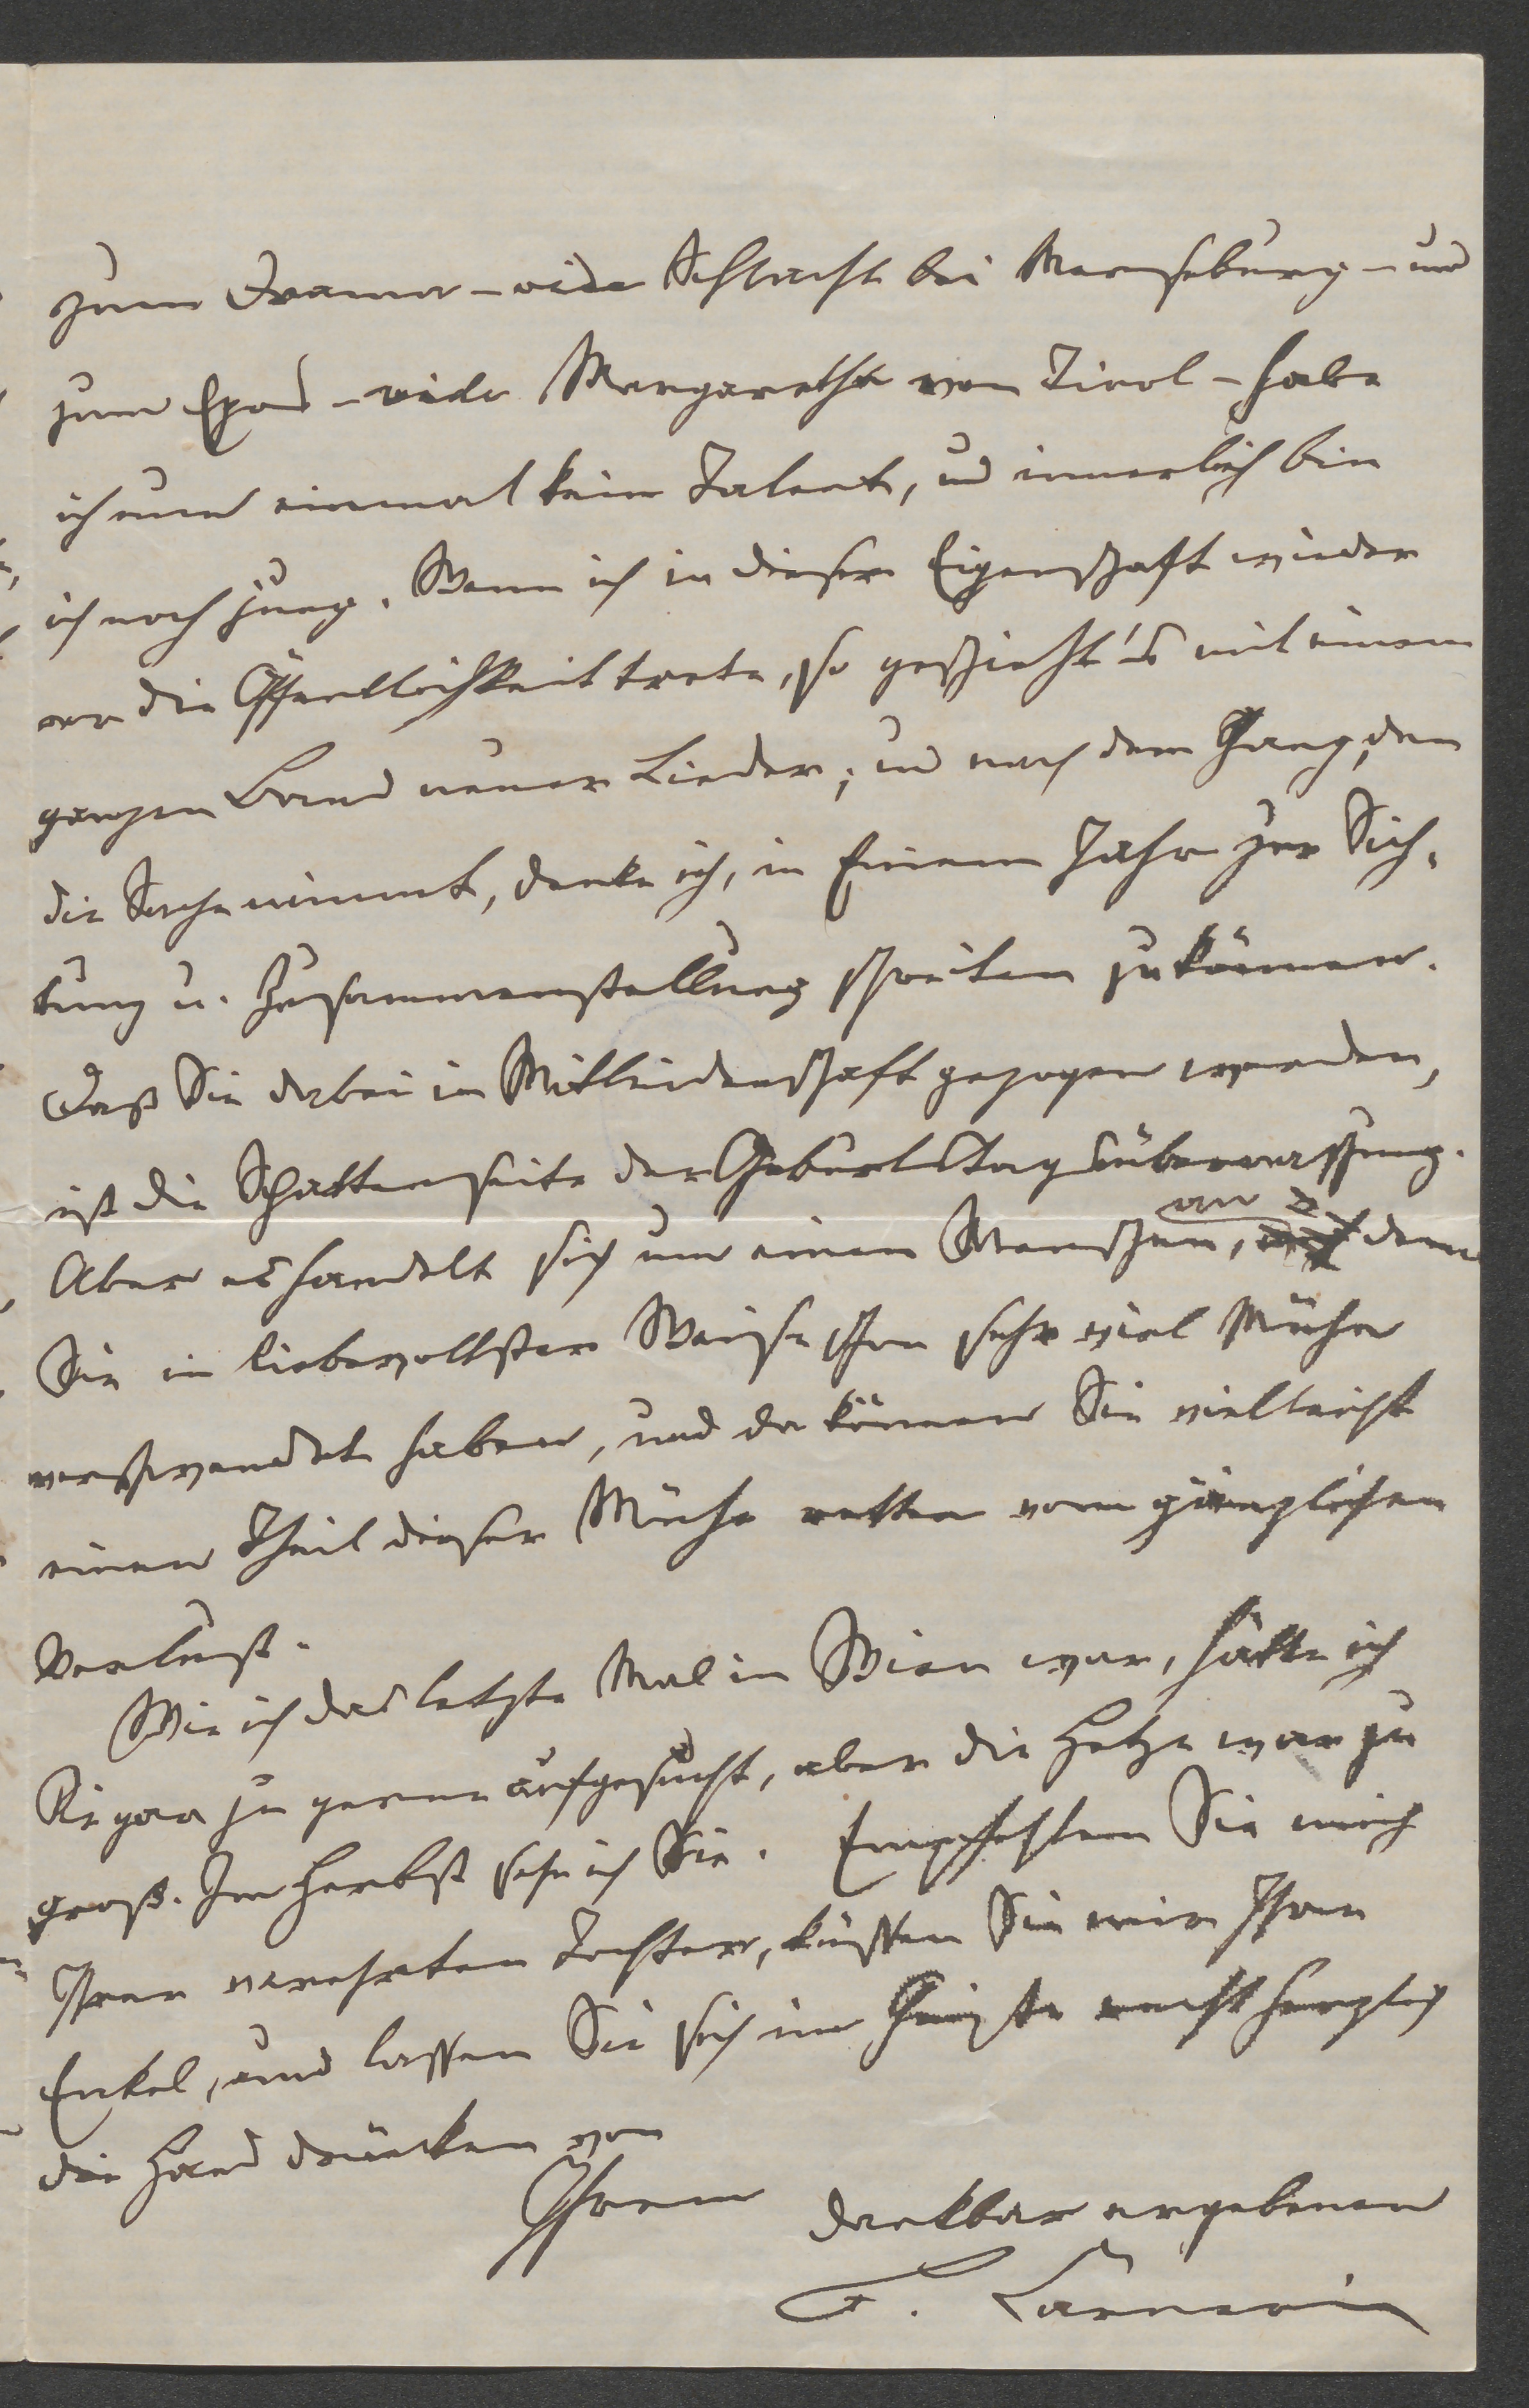 zum Drama – vide Schlacht bei Merseburg – und
zum Epos – vide Margarethe von Tirol – habe
ich nun einmal kein Talent, und innerlich bin
ich noch jung. Wenn ich in dieser Eigenschaft wieder
vor die Öffentlichkeit trete, so geschieht's mit einem
ganzen Band neuer Lieder; und nach dem Gang, den
die Sache nimmt, denke ich, in Einem Jahr zur Sich-
tung u. Zusammenstellung schreiten zu können.
Daß Sie dabei in Mitleidenschaft gezogen werden,
ist die Schattenseite der Geburtstagsüberraschung.
Aber es handelt sich um einen Menschen, an dem
Sie in liebevollster Weise schon sehr viel Mühe
verschwendet haben, und da können Sie vielleicht
einen Theil dieser Mühe retten vom gänzlichen
Verlust.
Wie ich das letzte Mal in Wien war, hätte ich
Sie gar zu gerne aufgesucht, aber die Hetze war zu
groß. Im Herbst seh ich Sie. Empfehlen Sie mich
Ihrer verehrten Tochter, küssen Sie mir Ihren
Enkel, und lassen Sie sich im Geiste recht herzlich
die Hand drücken von
Ihrem dankbar ergebenen
B. Carneri